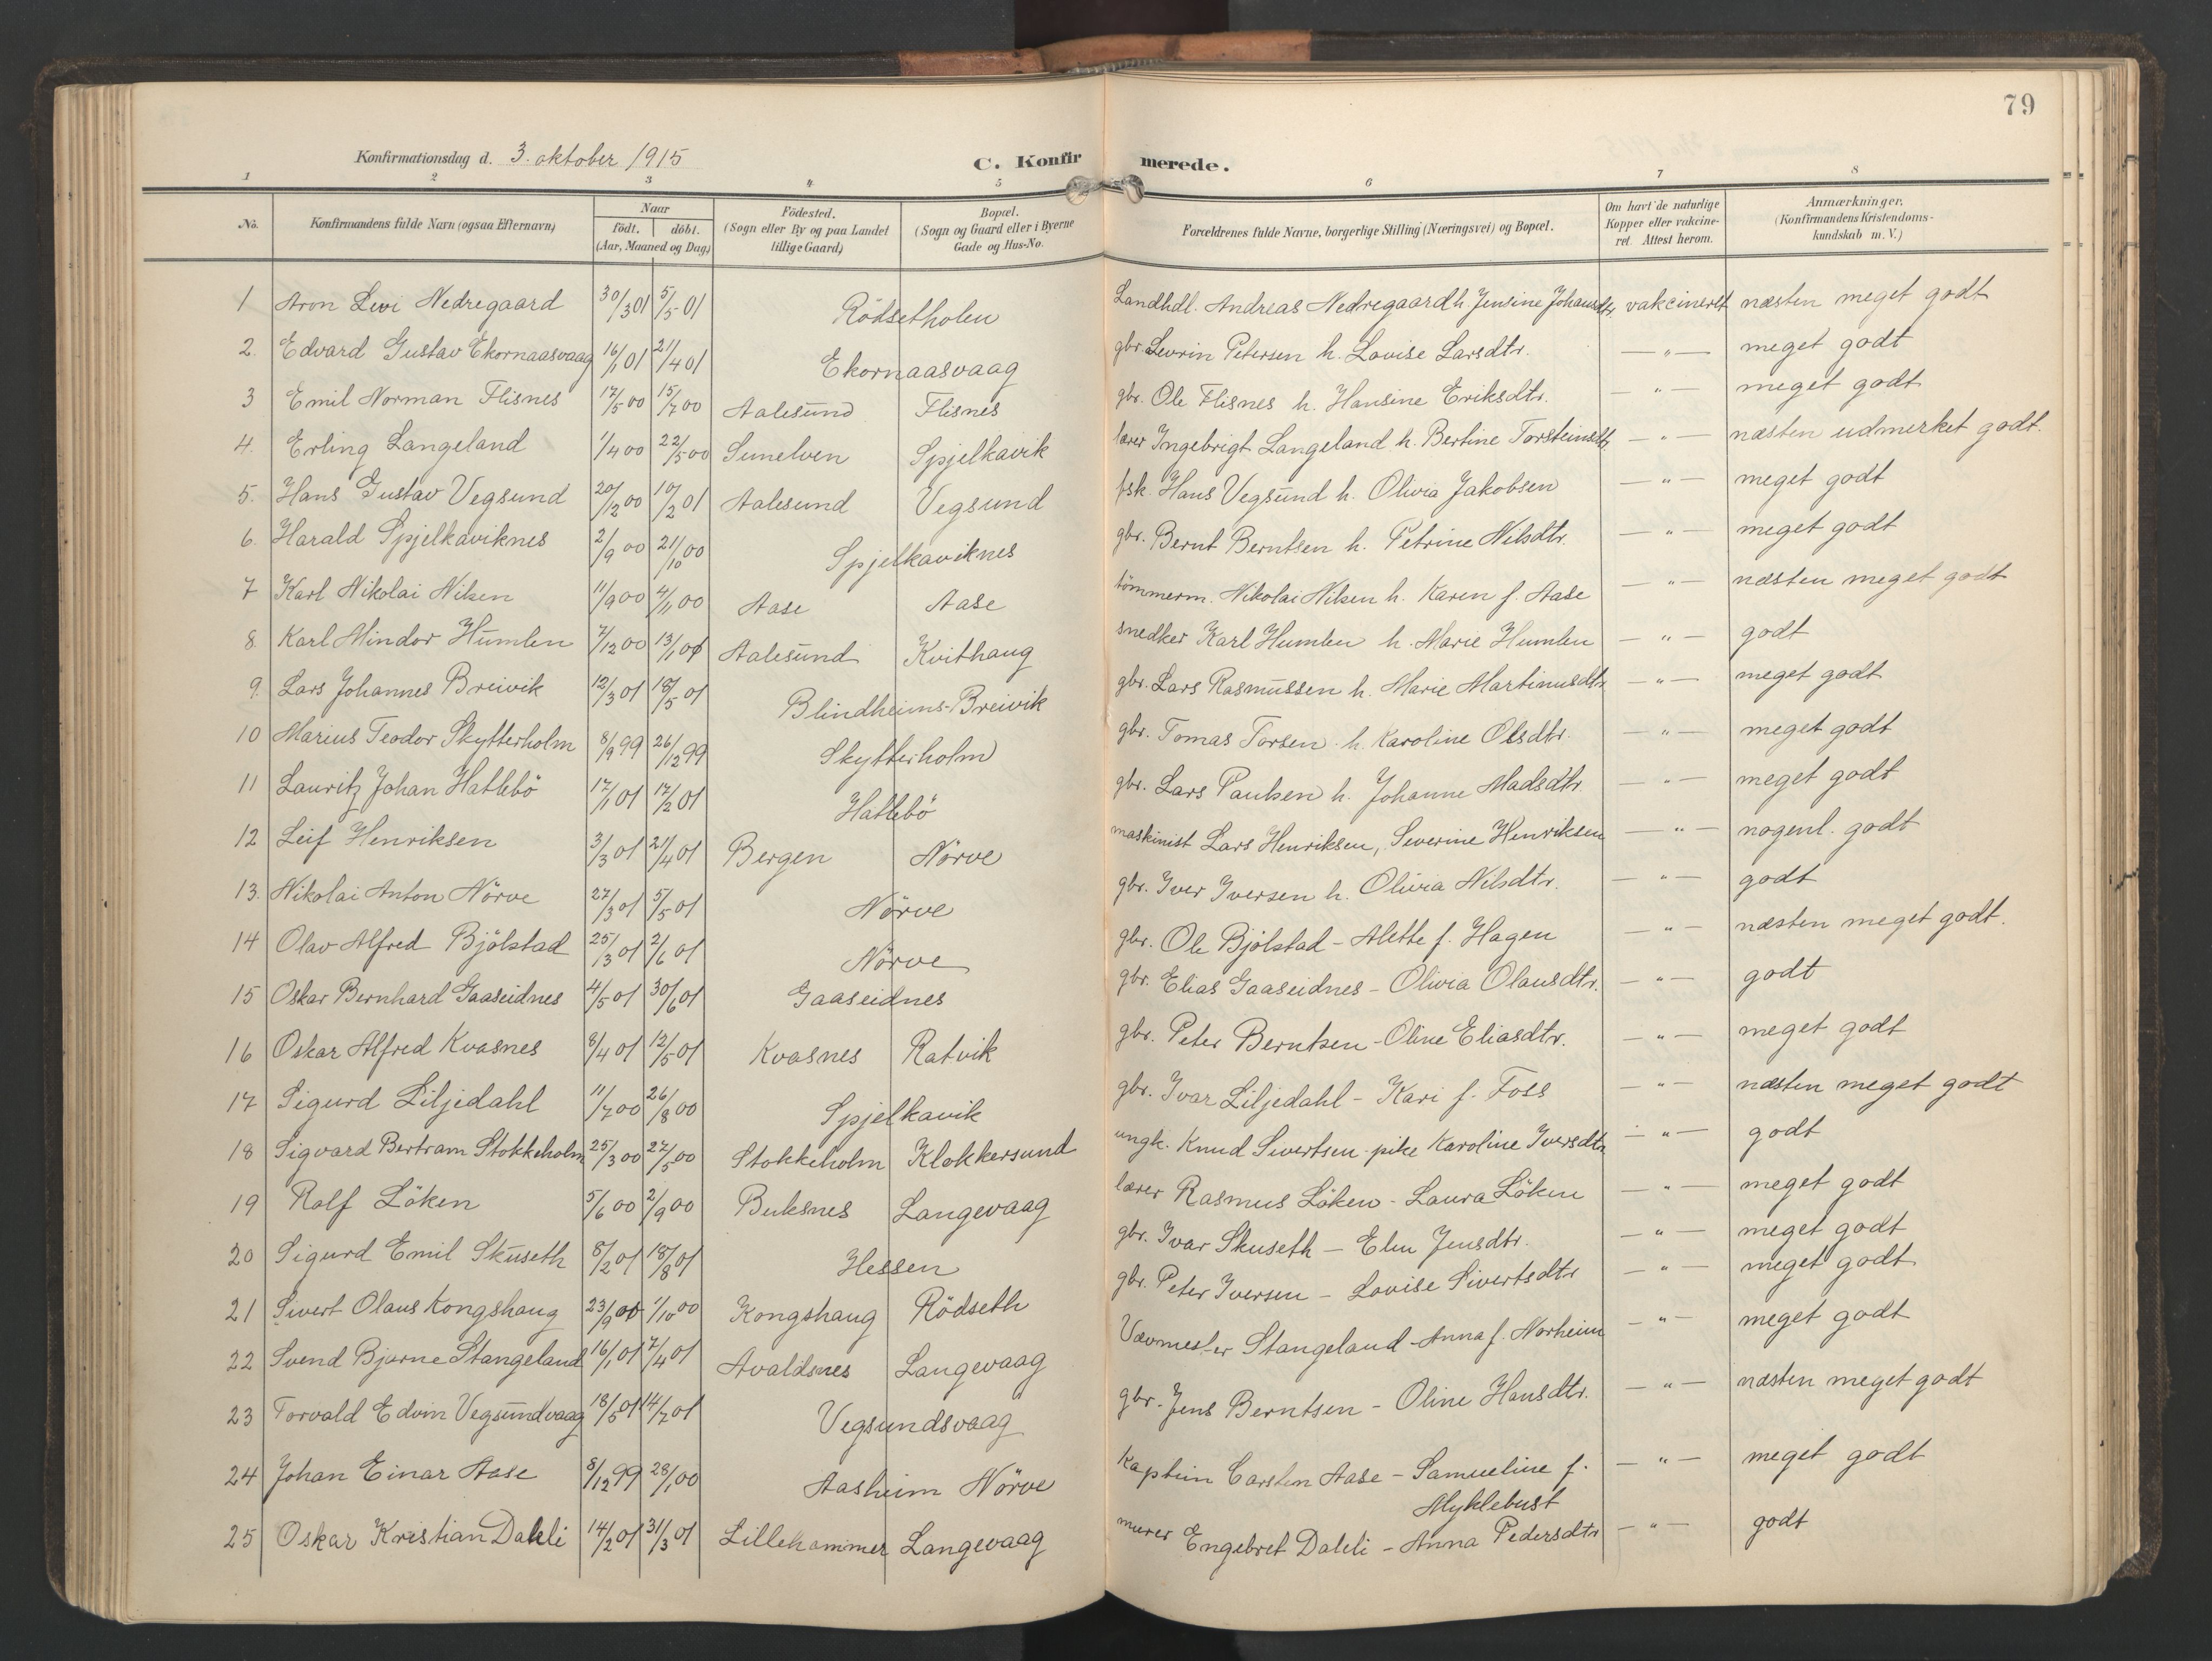 79
Konfirmationsdag d. 3. oktober 1915
C. Konfirmerede.
1 2 3 4 5 6 7 8
No. | Konfirmandens fulde Navn (ogsaa Efternavn) | Naar født. | døbt. (Aar, Maaned og Dag) | Födested. (Sogn eller By og paa Landet tillige Gaard) | Bopæl. (Sogn og Gaard eller i Byerne Gade og Hus-No. | Forældrenes fulde Navne, borgerlige Stilling (Næringsvei) og Bopæl. | Om havt de naturlige Kopper eller vakcineret. Attest herom. | Anmærkninger. (Konfirmandens Kristendomskundskab m. V.)
1 Aron Levi Nedregaard 30/3 01 5/5 01 Rödsetholen Landhdl. Andreas Nedregaard h. Jensine Johansdtr. vakcineret næsten meget godt
2. Edvard Gustav Ekornaasvaag 16/1 01 21/4 01 Ekornaasvaag gbr. Sevrin Petersen h. Lovise Larsdtr. — " — meget godt
3 Emil Norman Flisnes 17/5 00 15/7 00 Aalesund Flisnes gbr. Ole Flisnes h. Hansine Eriksdtr. " — meget godt
4. Erling Langeland 1/4 00 22/5 00 Sunelven Spjelkavik lærer Ingebrigt Langeland h. Bertine Torsteinsdtr. — " — næsten udmerket godt.
5. Hans Gustav Vegsund 20/12 00 10/2 01 Aalesund Vegsund fsk. Hans Vegsund h. Olivia Jakobsen — " — meget godt
6. Harald Spjelkaviknes 2/9 00 21/10 00 Spjelkaviknes gbr. Bernt Berntsen h. Petrine Nilsdtr. — " — meget godt
7 Karl Nikolai Nilsen 11/9 00 4/11 00 Aase Aase tömmerm. Nikolai Nilsen h. Karen f. Aase — " — næsten meget godt
8. Karl Mindor Humlen 7/12 00 13/1 01 Aalesund Kvithaug snedker Karl Humlen h. Marie Humlen — " — godt
9. Lars Johannes Breivik 12/3 01 18/5 01 Blindheims-Breivik gbr. Lars Rasmussen h. Marie Martinusdtr — " — meget godt
10 Marius Teodor Skytterholm 8/9 99 26/12 99 Skytterholm gbr. Tomas Torsen h. Karoline Olsdtr. — " — meget godt
11 Lauritz Johan Hatlebö 17/1 01 17/2 01 Hatlebö gbr. Lars Paulsen h. Johanne Madsdtr. — " — meget godt
12 Leif Henriksen 3/3 01 21/4 01 Bergen Nörve maskinist Lars Henriksen, Severine Henriksen — " — nogenl. godt
13. Nikolai Anton Nörve 27/3 01 5/5 01 Nörve gbr. Iver Iversen h. Olivia Nilsdtr. — " — godt
14 Olav Alfred Bjölstad 25/3 01 2/6 01 Nörve gbr. Ole Bjölstad – Alette f. Hagen — " — næsten meget godt.
15 Oskar Bernhard Gaaseidnes 4/5 01 30/6 01 Gaaseidnes gbr. Elias Gaaseidnes – Olivia Olausdtr. — " — godt
16 Oskar Alfred Kvasnes 8/4 01 12/5 01 Kvasnes Ratvik gbr. Peter Berntsen – Oline Eliasdtr. — " — meget godt
17 Sigurd Liljedahl 11/7 00 26/8 00 Spjelkavik gbr. Ivar Liljedahl – Kari f. Foss — " — næsten meget godt
18 Sigvard Bertram Stokkeholm 25/3 00 27/5 00 Stokkeholm Klokkersund ungk. Knud Sivertsen pike Karoline Iversdtr — " — godt
19 Rolf Löken 5/6 00 2/9 00 Buksnes Langevaag lærer Rasmus Löken – Laura Löken — " — meget godt
20 Sigurd Emil Skuseth 8/2 01 18/8 01 Hessen gbr. Ivar Skuseth – Elen Jensdtr. — " — meget godt
21 Sivert Olaus Kongshaug 23/9 00 1/10 00 Kongshaug Rödseth gbr. Peter Iversen – Lovise Sivertsdtr — " — meget godt
22 Svend Bjarne Stangeland 16/1 01 7/4 01 Avaldsnes Langevaag Vævmester Stangeland – Anna f. Norheim — " — meget godt
23 Torvald Edvin Vegsundvaag 18/5 01 14/7 01 Vegsundsvaag gbr. Jens Berntsen – Oline Hansdtr. — " — næsten meget godt
24 Johan Einar Aase 8/12 99 28/1 00 Aasheim Nörve Kaptein Carsten Aase – Samueline f. Myklebust — " — meget godt
25 Oskar Kristian Dahli 14/2 01 31/3 01 Lillehammer Langevaag murer Engebret Dahli – Anna Pedersdtr — " — godt